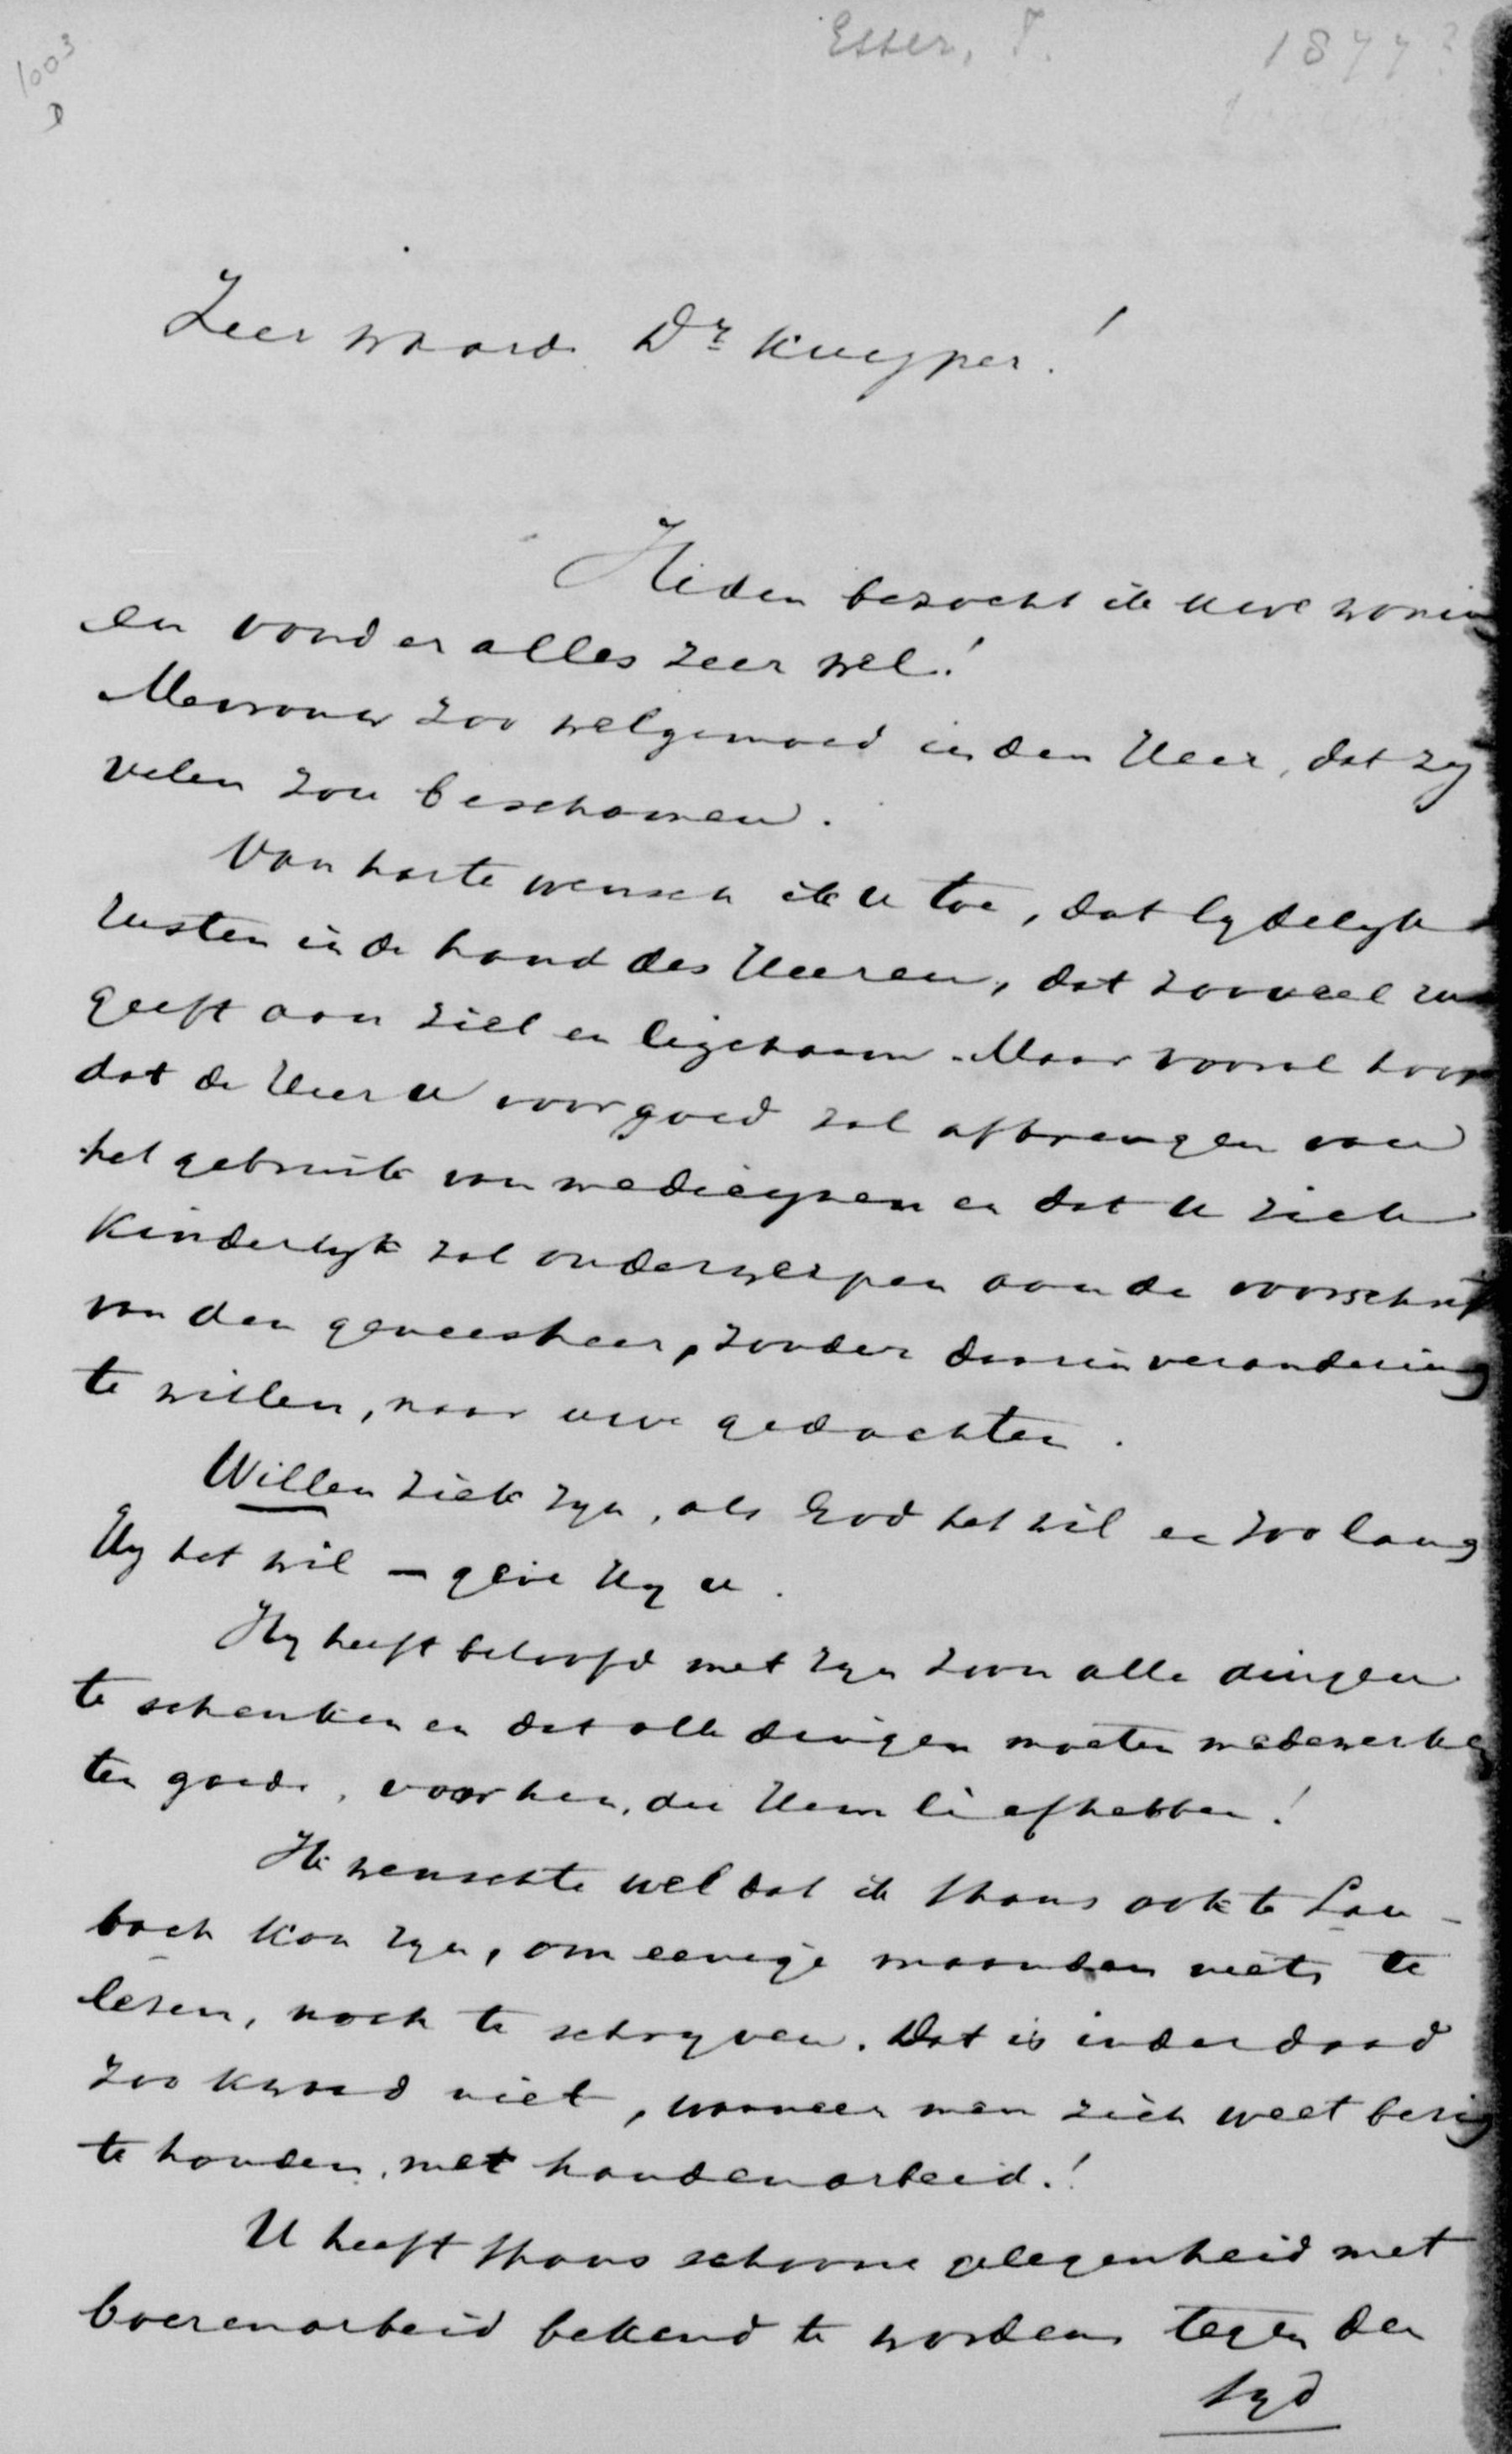 1003
D
Esser, I.
1877?
Zeer waarde Dr Kuyper!
Heden bezocht ik uwe wonin
en vond er alles zeer wel!
Mevrouw zoo welgemoed in den Heer, dat zy
velen zou beschamen.
Van harte wensch ik u toe, dat lydelyk
rusten in de hand des Heeren, dat zooveel rus
geeft aan ziel en ligchaam. Maar vooral hoop
dat de Heer u voor goed zal afbrengen van
het gebruik van medicynen en dat u zich
kinderlyk zal onderwerpen aan de voorschrift
van den geneesheer, zonder daarin verandering
te willen, naar uwe gedachten.
Willen ziek zyn, als God het wil en zoo lang
Hy het wil – geve Hy u.
Hy heeft beloofd met zyn Zoon alle dingen
te schenken en dat alle dingen moeten medewerken
ten goede, voor hen, die Hem liefhebben!
Ik wenschte wel dat ik thans ook te Lau-
bach kon zyn, om eenige maanden niets te
lezen, noch te schryven. Dat is inderdaad
zoo kwaad niet, wanneer men zich weet bezig
te houden, met handenarbeid.!
U heeft thans schoone gelegenheid met
boerenarbeid bekend te worden tegen den
tyd